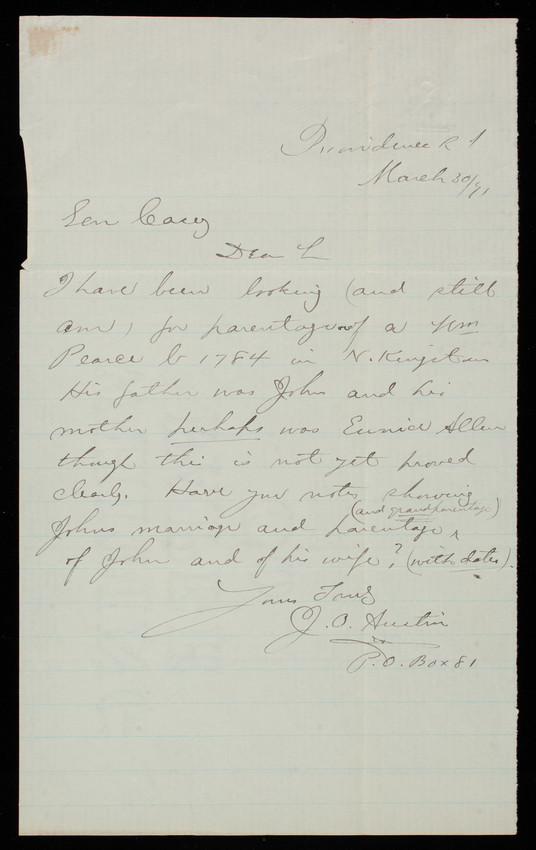 Providence R I
March 30/91
Gen Casey
Dear Sir
I have been looking (and still
am) for parentage of a Wm
Pearce b 1784 in N. Kingston
His father was John and his
mother perhaps was Eunice Allen
though this is not yet proved
clearly. Have you notes showing
(and grandparentage)
Johns marriage and parentage ^
of John and of his wife? (with dates).
Yours Truly
J. O. Austin
P. O. Box 81